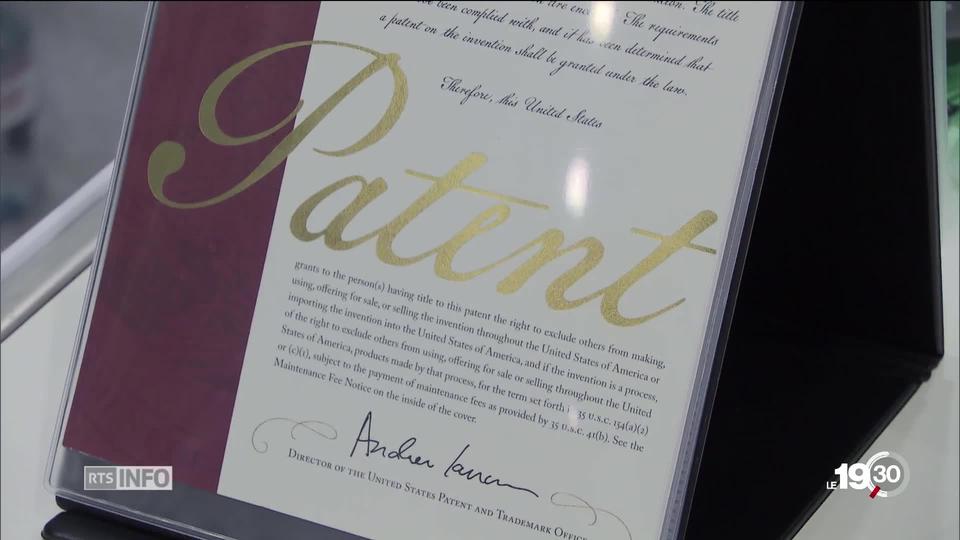 The title
been complied with, and it has been determined that The requirements
a patent on the invention shall be granted under the law.
Therefore, this United States
Patent
grants to the person(s) having title to this patent the right to exclude others from making,
using, offering for sale, or selling the invention throughout the United States of America or
importing the invention into the United States of America, and if the invention is a process,
of the right to exclude others from using, offering for sale or selling throughout the United
States of America, products made by that process, for the term set forth in 35 U.S.C. 154(a)(2)
or (c)(1), subject to the payment of maintenance fees as provided by 35 U.S.C. 41(b). See the
Maintenance Fee Notice on the inside of the cover.
Andrei Iancu
Director of the United States Patent and Trademark Office
RTS INFO
LE 19 30